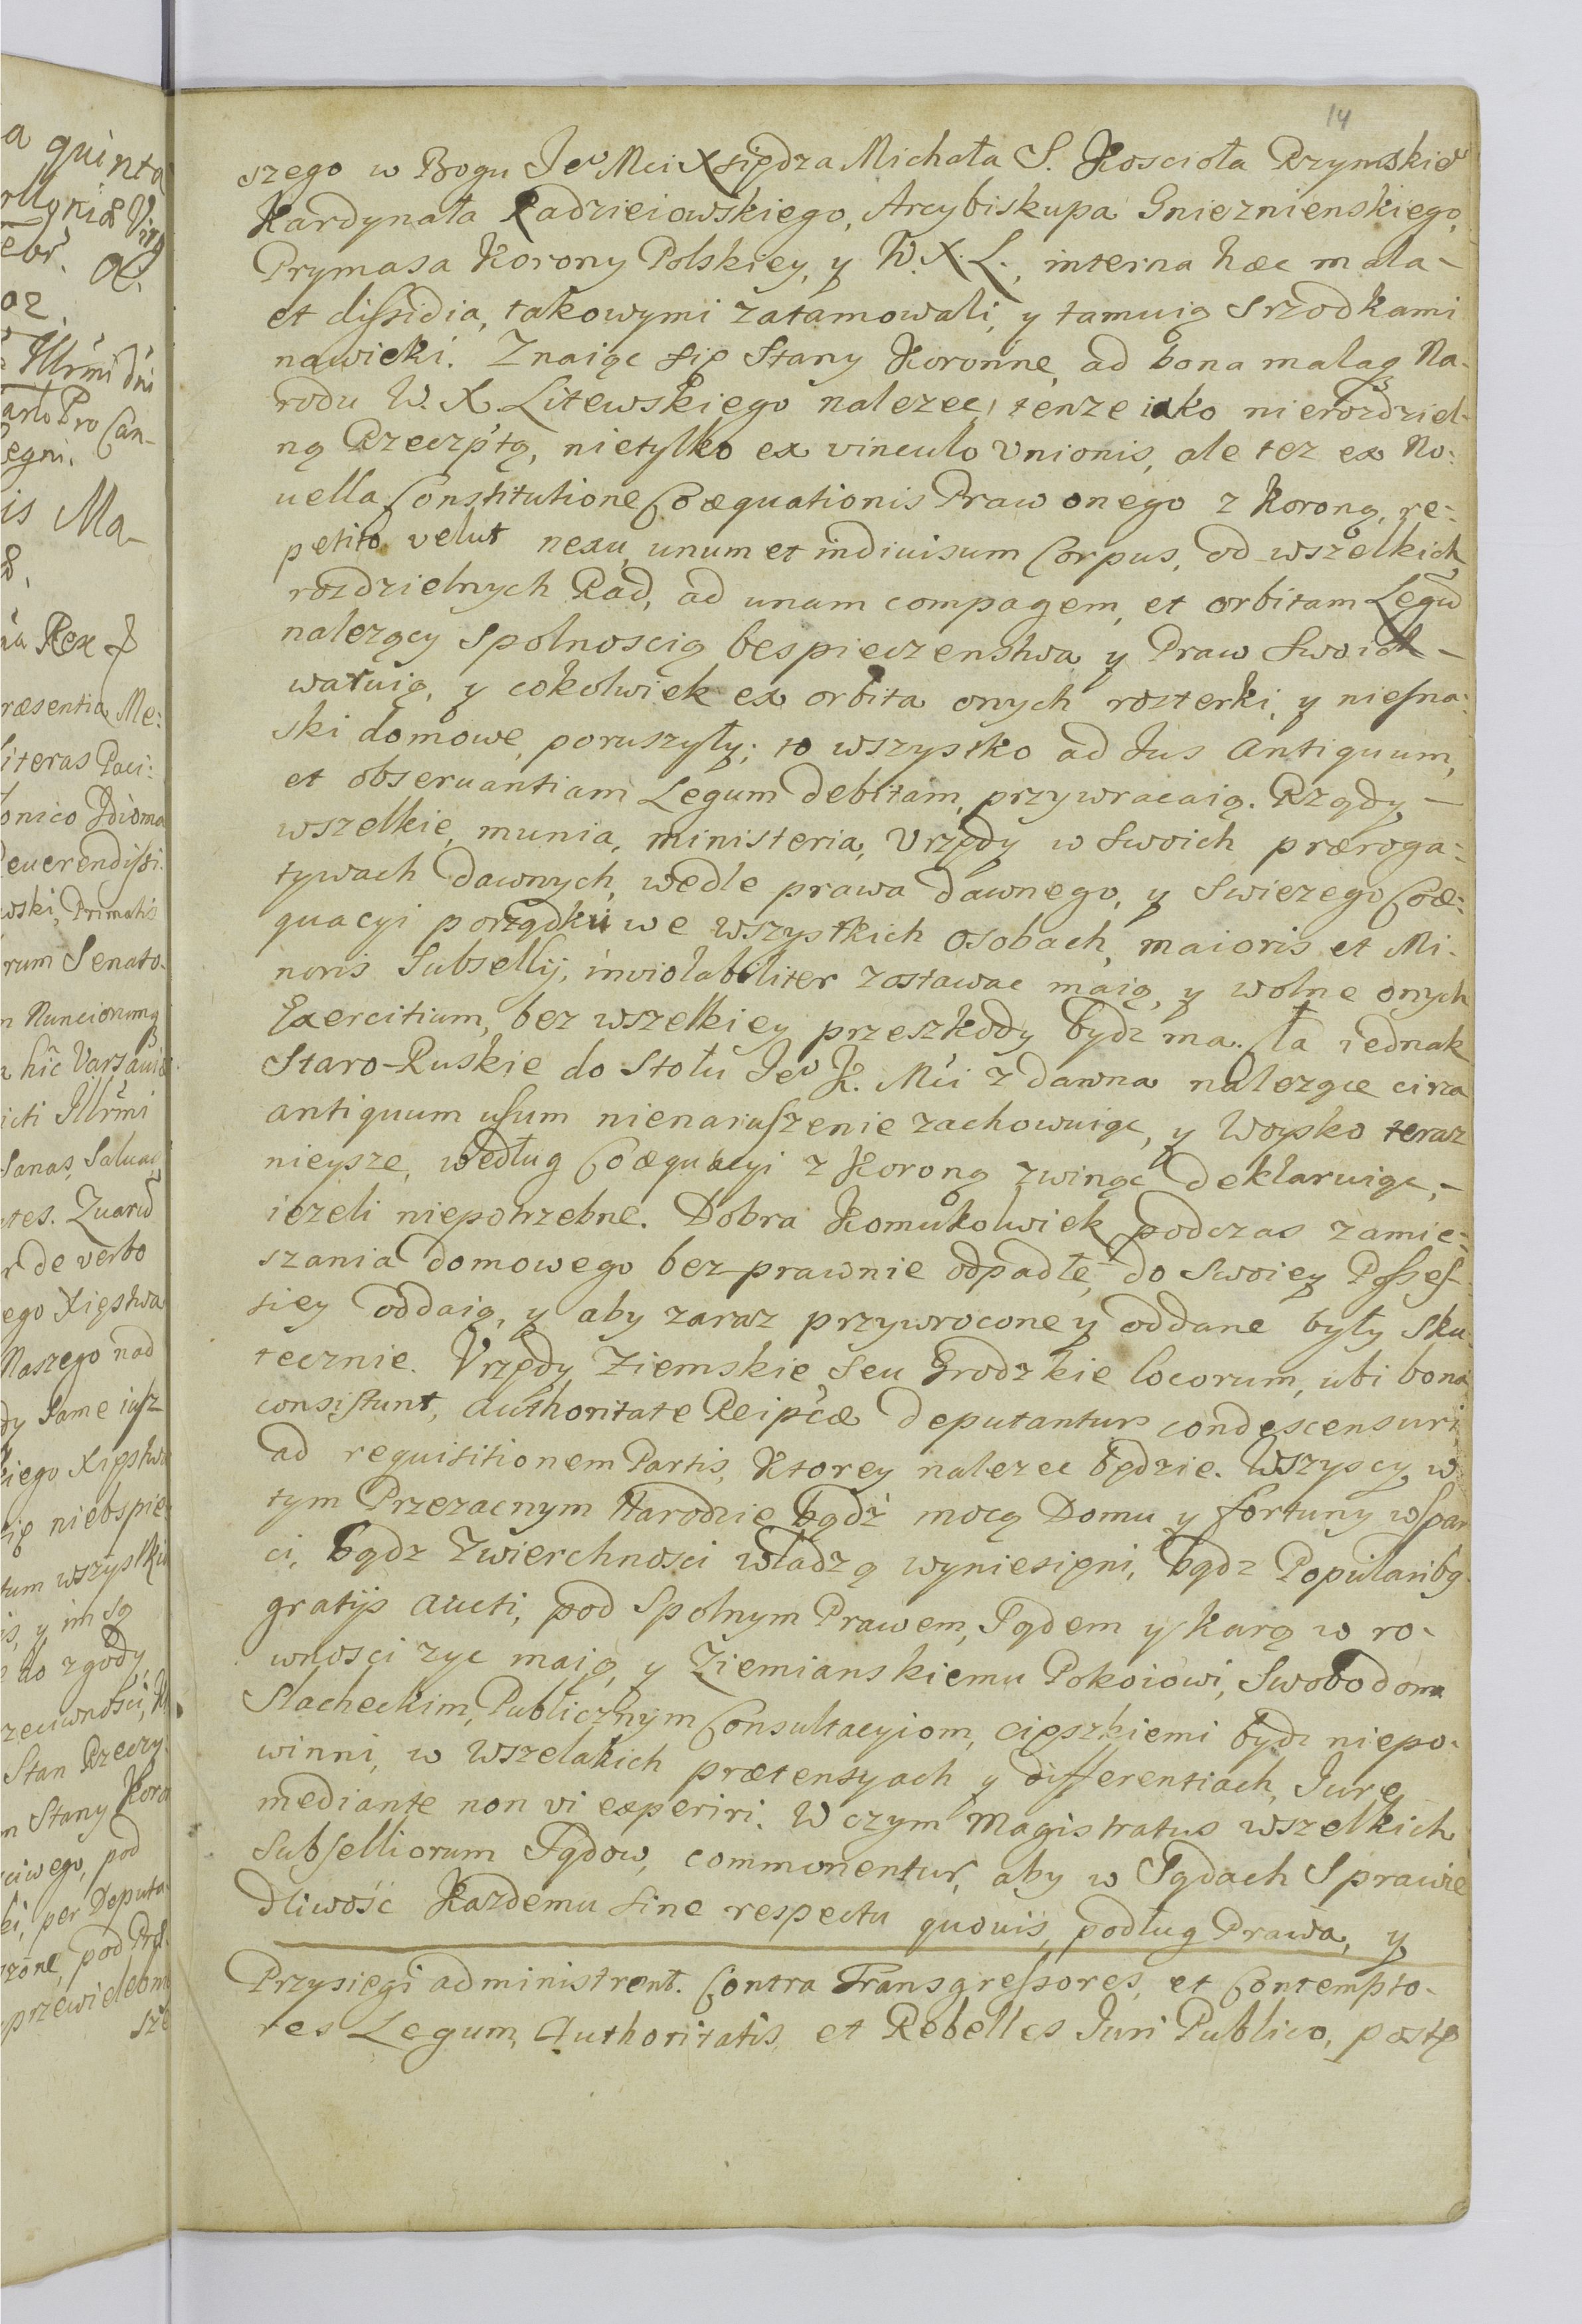 14
szego w Bogu Jeo Mci Xsiędza Michała S. Koscioła Rzymskieo
Kardynała Radzieiowskiego, Arcybiskupa Gnieznienskiego,
Prymasa Korony Polskiey, y W. X. L., interna hæc mala-
et dissidia, takowymi zatamowali, y tamuią srzodkami
nawieki. Znaiąc się Stany Koronne, ad bona malaq Na-
rodu W. X. Litewskiego nalezec, tenze iako nierozdziel-
ną Rzeczptą, nietylko ex vinculo Unionis, ale tez ex No:
uella Constitutione Coæquationis Praw onego z Koroną, re-
petito velut nexu, unum et indiuisum Corpus, od wszelkich
rozdzielnych Rad, ad unam compagem, et orbitam Legū
nalezący spolnoscią bespieczenstwa y Praw Swoich -
waruią, y cokolwiek ex orbita onych rozterki, y niesna:
ski domowe, poruszyły; to wszystko ad Jus Antiquum,
et obseruantiam Legum debitam, przywracaią. Rządy -
wszelkie, munia, ministeria, Urzędy w Swoich præroga:
tywach dawnych, wedle prawa dawnego, y Swiezego Coæ:
quacyi porządku we wszystkich osobach, maioris et Mi-
noris Subsellij, inviolabiliter zostawac maią, y wolne onych
Exercitium, bez wszelkiey przeszkody bydz ma. Ta iednak
Staro-Ruskie do Stołu Jeo K. Mci z dawna nalezące circa
antiquum usum nienaruszenie zachowuiąc, y Woysko teraz
nieysze, według Coæquacyi z Koroną zwinąc deklaruiąc, -
iezeli niepotrzebne. Dobra Komukolwiek podczas zamie-
szania domowego bezprawnie odpadłe, do Swoiey Posses-
siey oddaią, y aby zaraz przywrocone y oddane były sku-
tecznie. Urzędy Ziemskie, Seu Grodzkie locorum, ubi bona
consistunt, authoritate Reipcæ deputantur condescensuri
ad requisitionem Partis, Ktorey nalezec będzie. Wszyscy w
tym Przezacnym Narodzie bądź mocą Domu y fortuny wspar
ci, bądz Zwierchnosci władzą wyniesięni, bądz Popularibq
gratijs aucti, pod Spolnym Prawem, Sądem y Karą w ro-
wnosci zyc maią, y Ziemianskiemu Pokoiowi, Swobodom
Slacheckim, Publicznym Consultacyiom, cięszkiemi bydz niepo-
winni, w wszelakich prætensyach y differentiach, Jure
mediante non vi experiri. W czym Magistratus wszelkich
Subselliorum Sądow, commonentur, aby w Sądach Sprawie
dliwość Kazdemu sine respectu quouis, podług Prawa, y
Przysiegi administrent. Contra Transgressores, et Contempto-
res Legum, Authoritatis, et Rebelles Juri Publico, postę